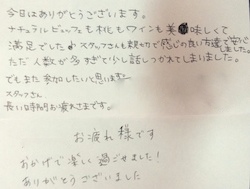 今日はありがとうございます。
ナチュラルビュッフェも本化もワインも美味しくて
満足でした♪スタッフさんも親切で感じの良い方達で安心しました。
ただ人数が多すぎて少し話しつかれてしまいました。
でもまた参加したいと思います
スタッフさん
長い時間お疲れさまです。
お疲れ様です
おかげで楽しく過ごせました!
ありがとうございました